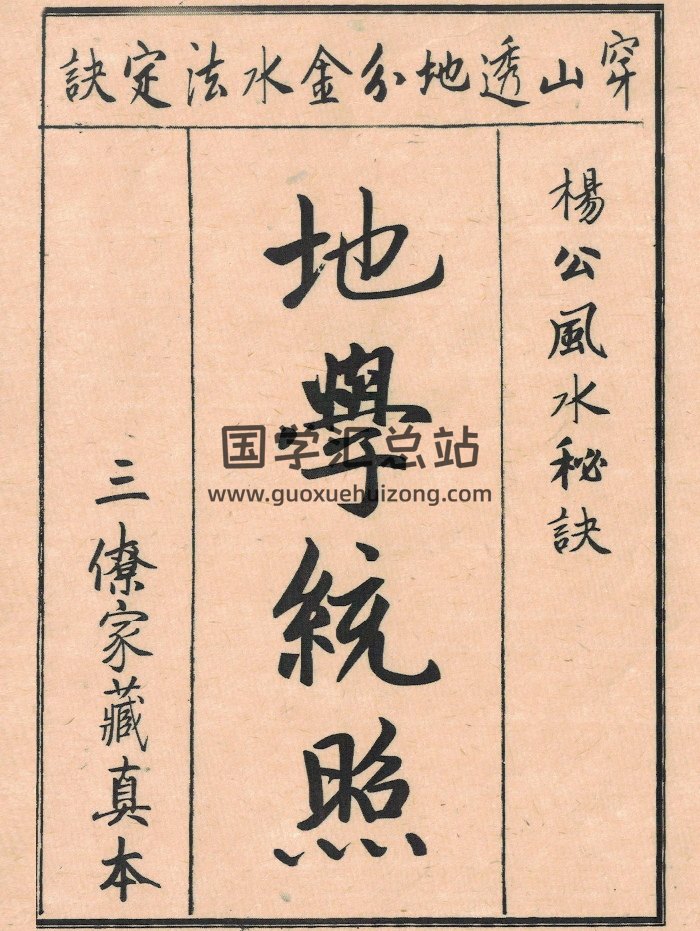 穿山透地分金水法定訣
楊公風水秘訣
地學統照
三僚家藏真本
国学汇总站
www.guoxuehuizong.com